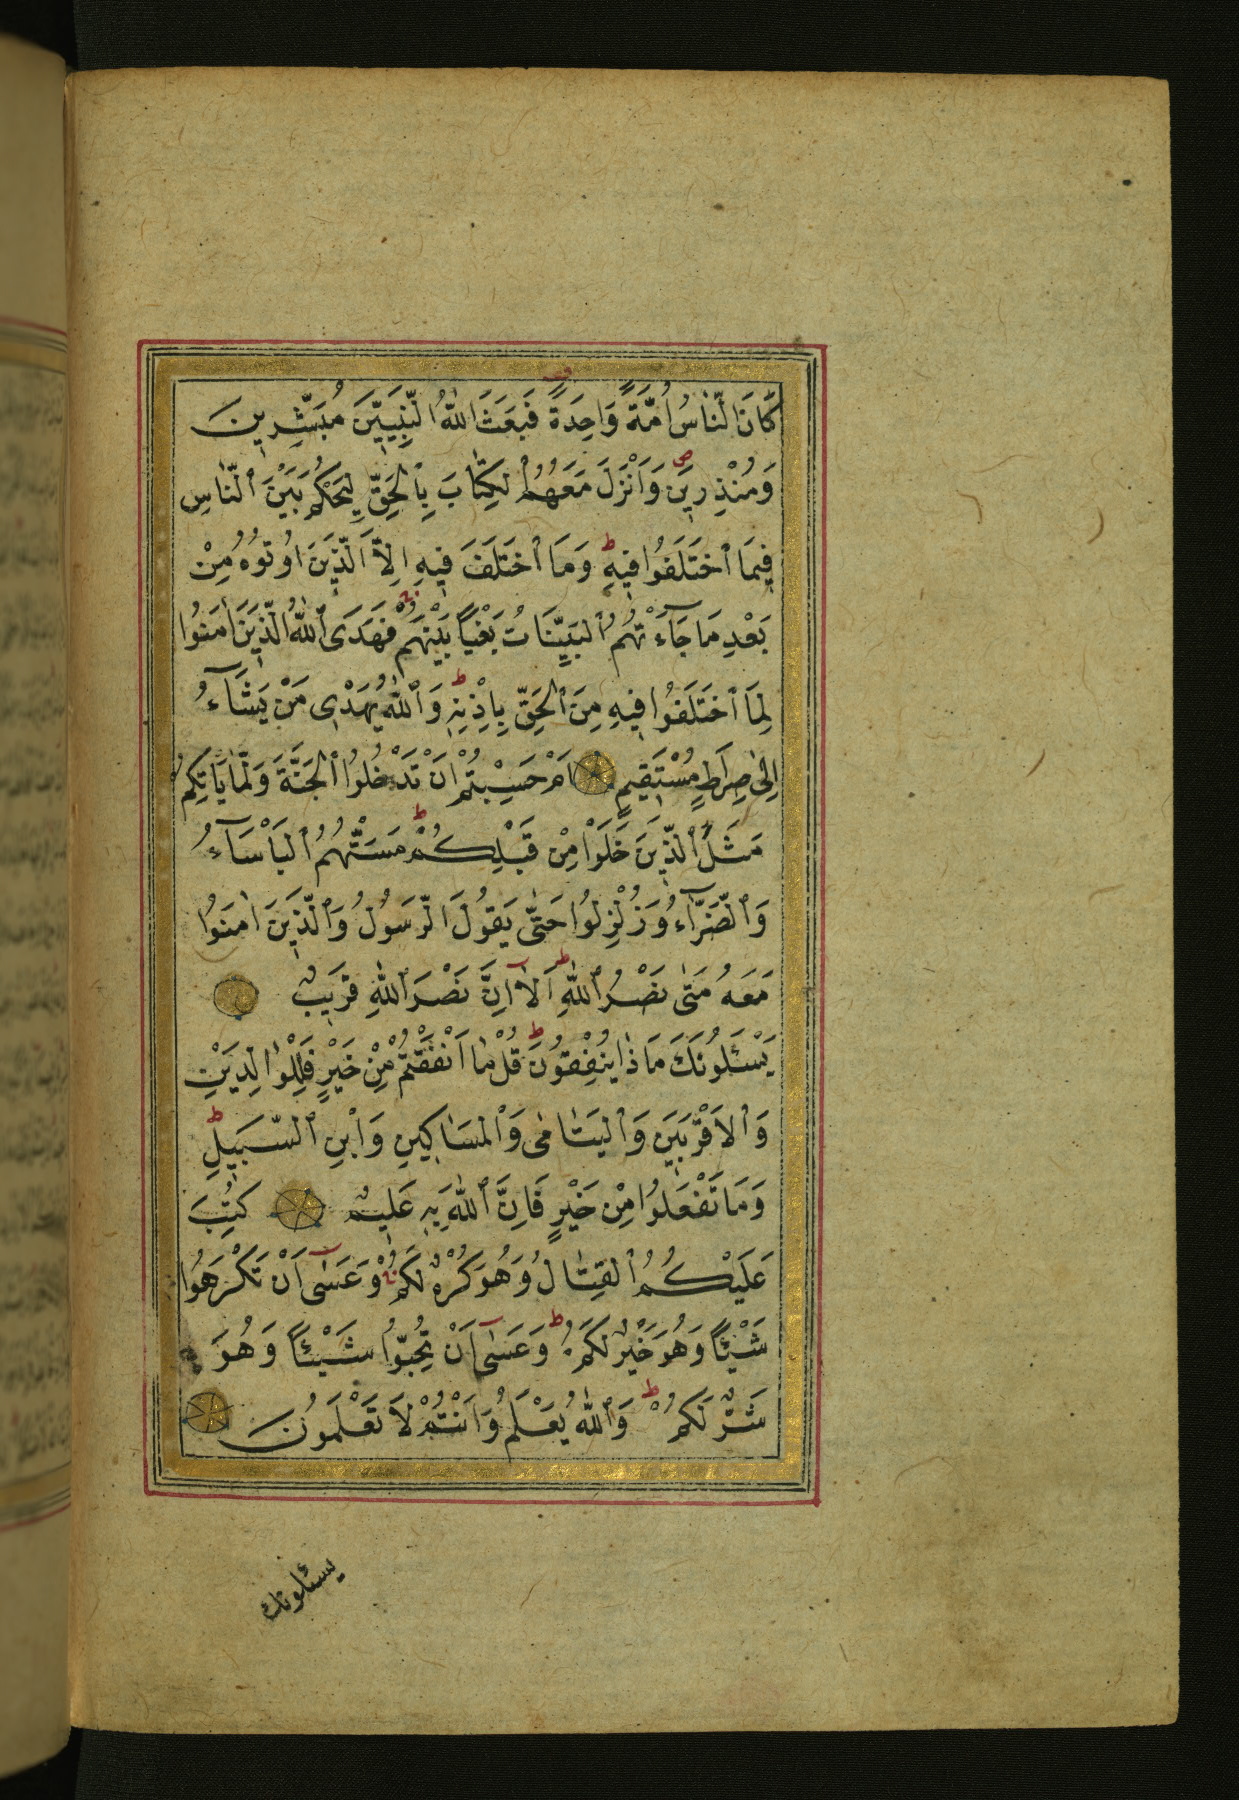 كَانَ النَّاسُ اُمَّةً وَاحِدَةً فَبَعَثَ اللّٰهُ النَّبِيِّينَ مُبَشِّرِينَ
وَمُنْذِرِينَ وَاَنْزَلَ مَعَهُمُ الْكِتَابَ بِالْحَقِّ لِيَحْكُمَ بَيْنَ النَّاسِ
فِيمَا اخْتَلَفُوا فِيهِ وَمَا اخْتَلَفَ فِيهِ اِلَّا الَّذِينَ اُوتُوهُ مِنْ
بَعْدِ مَا جَآءَتْهُمُ الْبَيِّنَاتُ بَغْيًا بَيْنَهُمْ فَهَدَى اللّٰهُ الَّذِينَ اٰمَنُوا
لِمَا اخْتَلَفُوا فِيهِ مِنَ الْحَقِّ بِاِذْنِهٖ وَاللّٰهُ يَهْدِى مَنْ يَشَآءُ
اِلٰى صِرَاطٍ مُسْتَقِيمٍ اَمْ حَسِبْتُمْ اَنْ تَدْخُلُوا الْجَنَّةَ وَلَمَّا يَاْتِكُمْ
مَثَلُ الَّذِينَ خَلَوْا مِنْ قَبْلِكُمْ مَسَّتْهُمُ الْبَاْسَآءُ
وَالضَّرَّآءُ وَزُلْزِلُوا حَتّٰى يَقُولَ الرَّسُولُ وَالَّذِينَ اٰمَنُوا
مَعَهُ مَتٰى نَصْرُ اللّٰهِ اَلَآ اِنَّ نَصْرَ اللّٰهِ قَرِيبٌ
يَسْئَلُونَكَ مَاذَا يُنْفِقُونَ قُلْ مَا اَنْفَقْتُمْ مِنْ خَيْرٍ فَلِلْوَالِدَيْنِ
وَالْاَقْرَبِينَ وَالْيَتَامٰى وَالْمَسَاكِينِ وَابْنِ السَّبِيلِ
وَمَا تَفْعَلُوا مِنْ خَيْرٍ فَاِنَّ اللّٰهَ بِهٖ عَلِيمٌ كُتِبَ
عَلَيْكُمُ الْقِتَالُ وَهُوَ كُرْهٌ لَكُمْ وَعَسٰٓى اَنْ تَكْرَهُوا
شَيْئًا وَهُوَ خَيْرٌ لَكُمْ وَعَسٰٓى اَنْ تُحِبُّوا شَيْئًا وَهُوَ
شَرٌّ لَكُمْ وَاللّٰهُ يَعْلَمُ وَاَنْتُمْ لَا تَعْلَمُونَ
يسئلونك